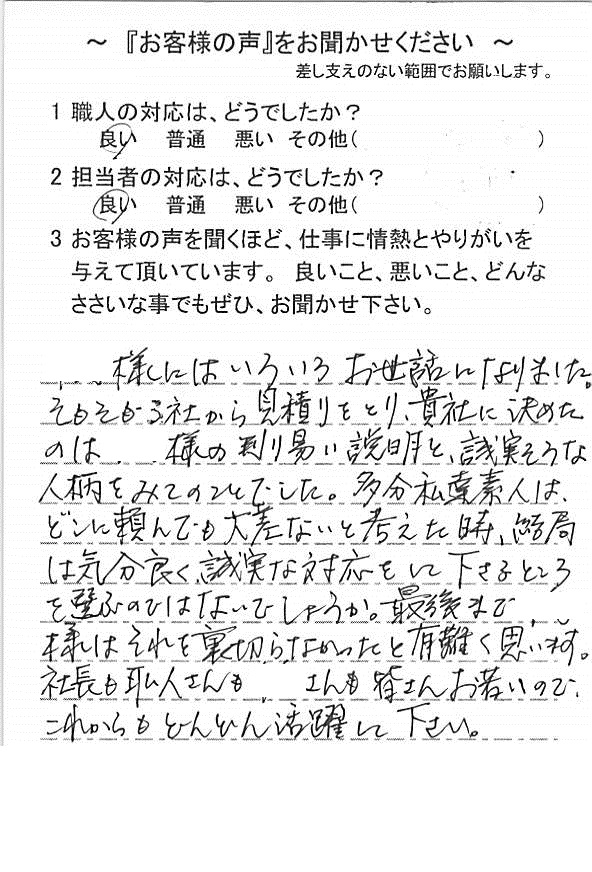 ～ 『お客様の声』をお聞かせください ～
差し支えのない範囲でお願いします。
1 職人の対応は、どうでしたか?
良い 普通 悪い その他( )
2 担当者の対応は、どうでしたか?
良い 普通 悪い その他( )
3 お客様の声を聞くほど、仕事に情熱とやりがいを
与えて頂いています。 良いこと、悪いこと、どんな
ささいな事でもぜひ、お聞かせ下さい。
様にはいろいろお世話になりました。
そもそも 社から見積りをとり、貴社に決めた
のは 様の判り易い説明と、誠実そうな
人柄をみてのことでした。多分私達素人は、
どこに頼んでも大差ないと考えた時、結局
は気分良く誠実な対応をして下さるところ
を選ぶのではないでしょうか。最後まで
様はそれを裏切らなかったと有難く思います。
社長も職人さんも さんも皆さんお若いので、
これからもどんどん活躍して下さい。